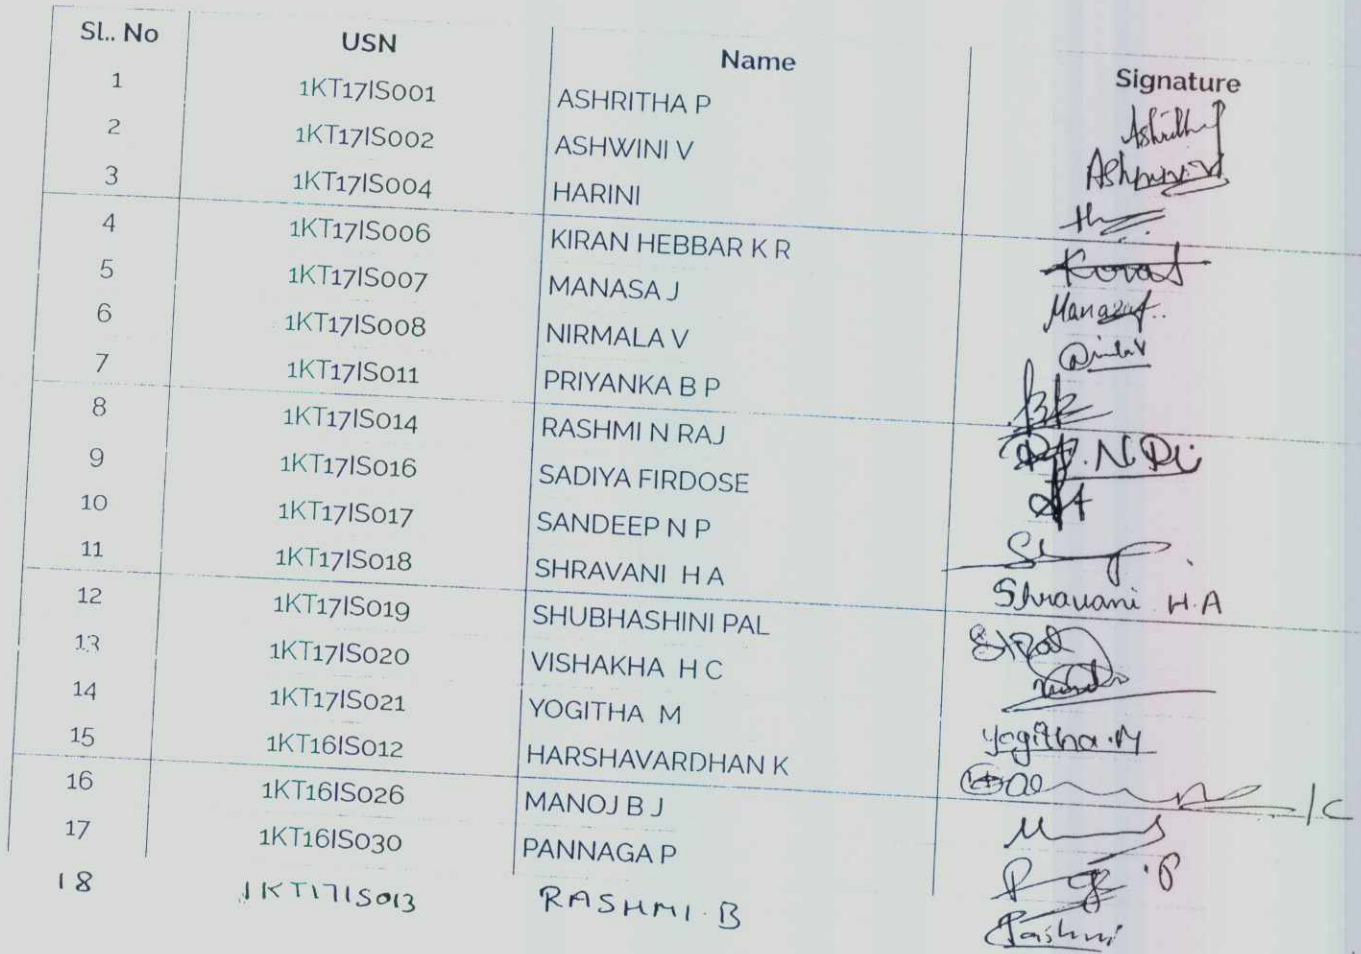 Sl.. No USN Name Signature
1 1KT17IS001 ASHRITHA P
2 1KT17IS002 ASHWINI V
3 1KT17IS004 HARINI
4 1KT17IS006 KIRAN HEBBAR K R
5 1KT17IS007 MANASA J
6 1KT17IS008 NIRMALA V
7 1KT17IS011 PRIYANKA B P
8 1KT17IS014 RASHMI N RAJ
9 1KT17IS016 SADIYA FIRDOSE
10 1KT17IS017 SANDEEP N P
11 1KT17IS018 SHRAVANI H A Shravani H.A
12 1KT17IS019 SHUBHASHINI PAL
13 1KT17IS020 VISHAKHA H C
14 1KT17IS021 YOGITHA M Yogitha.M
15 1KT16IS012 HARSHAVARDHAN K
16 1KT16IS026 MANOJ B J
17 1KT16IS030 PANNAGA P
18 1KT17IS013 RASHMI.B Rashmi